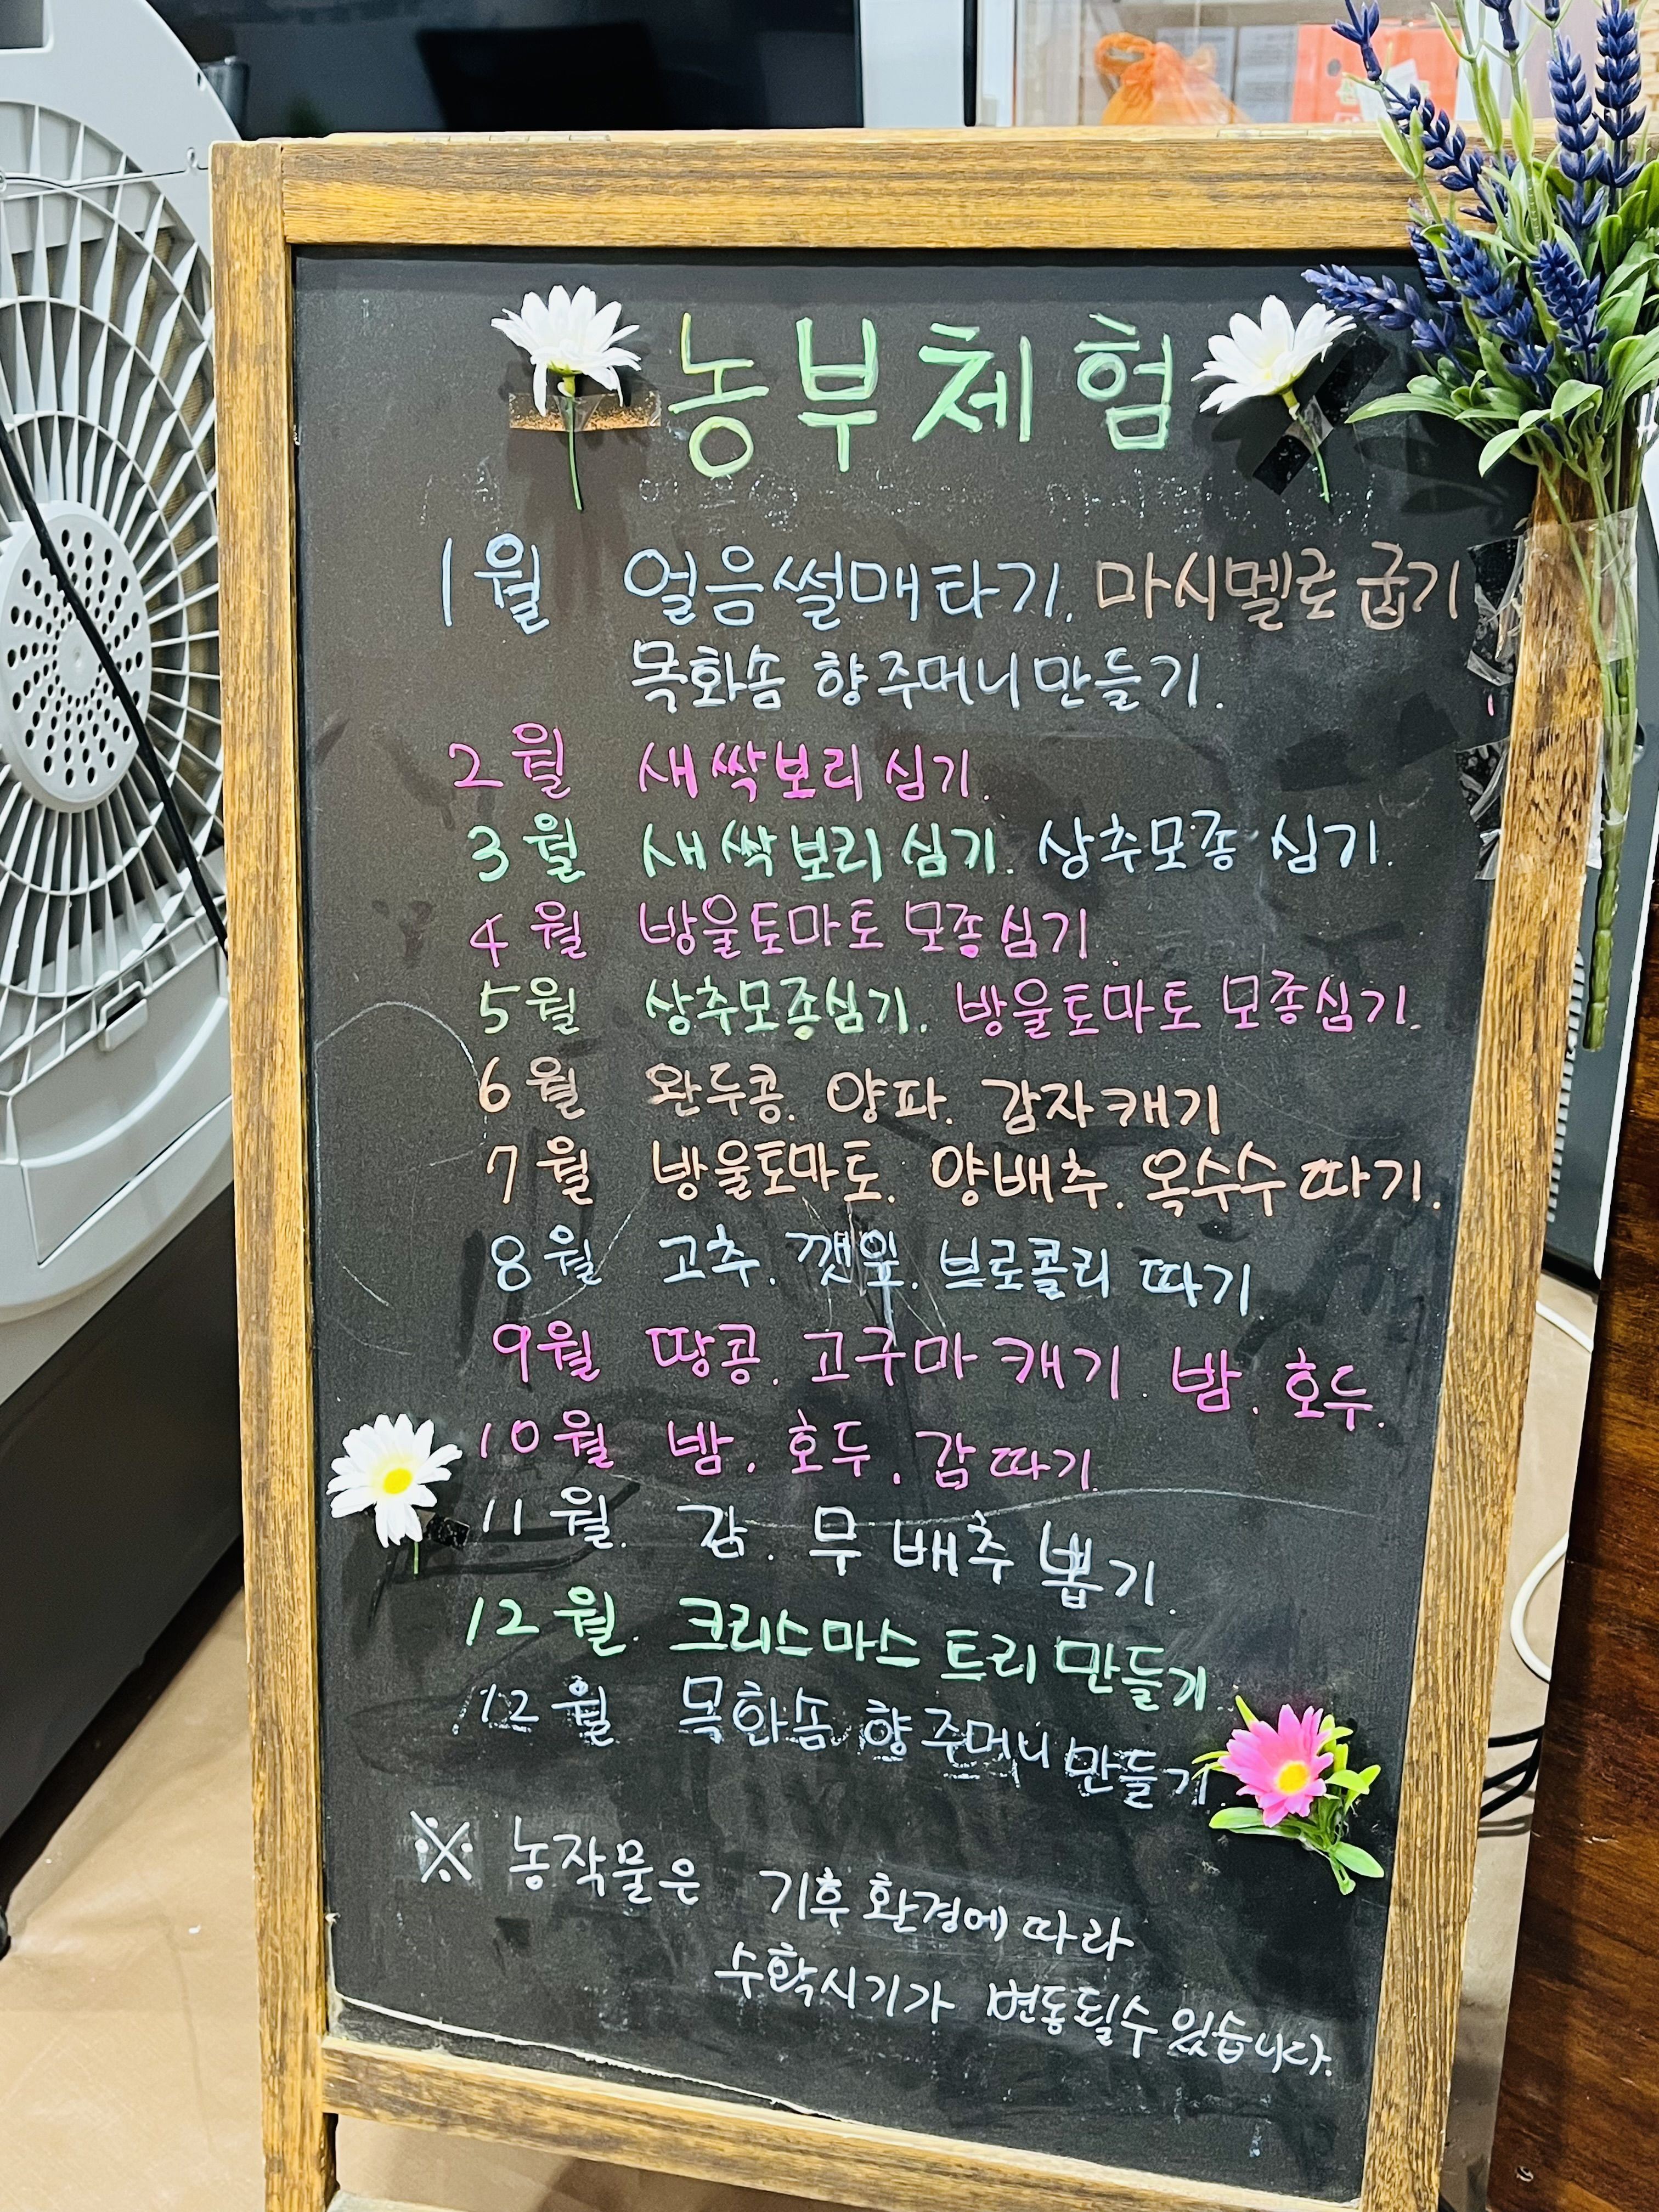 농부체험
1월 얼음썰매타기. 마시멜로 굽기
목화솜 향주머니만들기.
2월 새싹보리 심기.
3월 새싹보리 심기. 상추모종 심기.
4월 방울토마토 모종심기.
5월 상추모종심기. 방울토마토 모종심기.
6월 완두콩. 양파. 감자캐기
7월 방울토마토. 양배추. 옥수수따기.
8월 고추. 깻잎. 브로콜리 따기
9월 땅콩. 고구마 캐기. 밤. 호두.
10월 밤. 호두. 감따기.
11월. 감. 무 배추 뽑기.
12월. 크리스마스 트리 만들기
12월 목화솜 향주머니만들기.
※ 농작물은 기후환경에 따라
수확시기가 변동될수 있습니다.